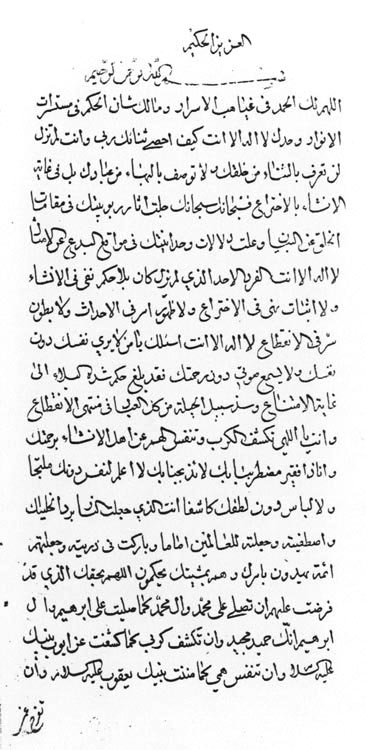 العزيز الحكيم
بسم الله الرحمن الرحيم
اللهم لك الحمد في غياهب الاسرار و مالك شان الحكم في مستسرات
الانوار وحدك لا اله الا انت كيف احصي ثنائك ربي وانت لم تزل
لن تعرف بالثناء من خلقك ولا توصف بالبهاء من عبادك بل في غاية
الانشاء بالاختراع فسبحانك سبحانك جلت اثار ربوبيتك في مقامات
الخلق عن البنيا وعلت دلالات وحدانيتك في مواقع البدع عن الامثال
لا اله الا انت الفرد الاحد الذي لم تزل كان بلا حكم نفي في الانشاء
ولا اثبات نهي في الاختراع ولا ظهور امر في الاحداث ولا بطون
سر في الانقطاع لا اله الا انت اسئلك يا من لا يرى نفسك دون
نفسك ولا يسمع صوتي دون رحمتك فقد بلغ حكم شدة البلاء الى
غاية الامتناع وسد سبيل الحيلة من كل العباد في منتهى الانقطاع
وانت يا الهي تكشف الكرب وتنفس الهم عن اهل الانشاء برحمتك
وانا ذا فقير مضطر ببابك لائذ بجنابك لا اعلم لنفسي دونك ملتجأ
ولا لباس دون لطفك كاشفا انت الذي جعلت النار بردا لخليلك
واصطفيته وجعلته للعالمين اماما وباركت في ذريته وجعلتهم
ائمة يهدون بامرك وهم بمشيتك يحكمون اللهم بحقك الذي قد
فرضت عليهم ان تصلي على محمد وال محمد كما صليت على ابرهيم وال
ابرهيم انك حميد مجيد وان تكشف كربي كما كشفت عن ايوب نبيك
عليه السلام وان تنفس همي كما مننت بنبيك يعقوب عليه السلام وان